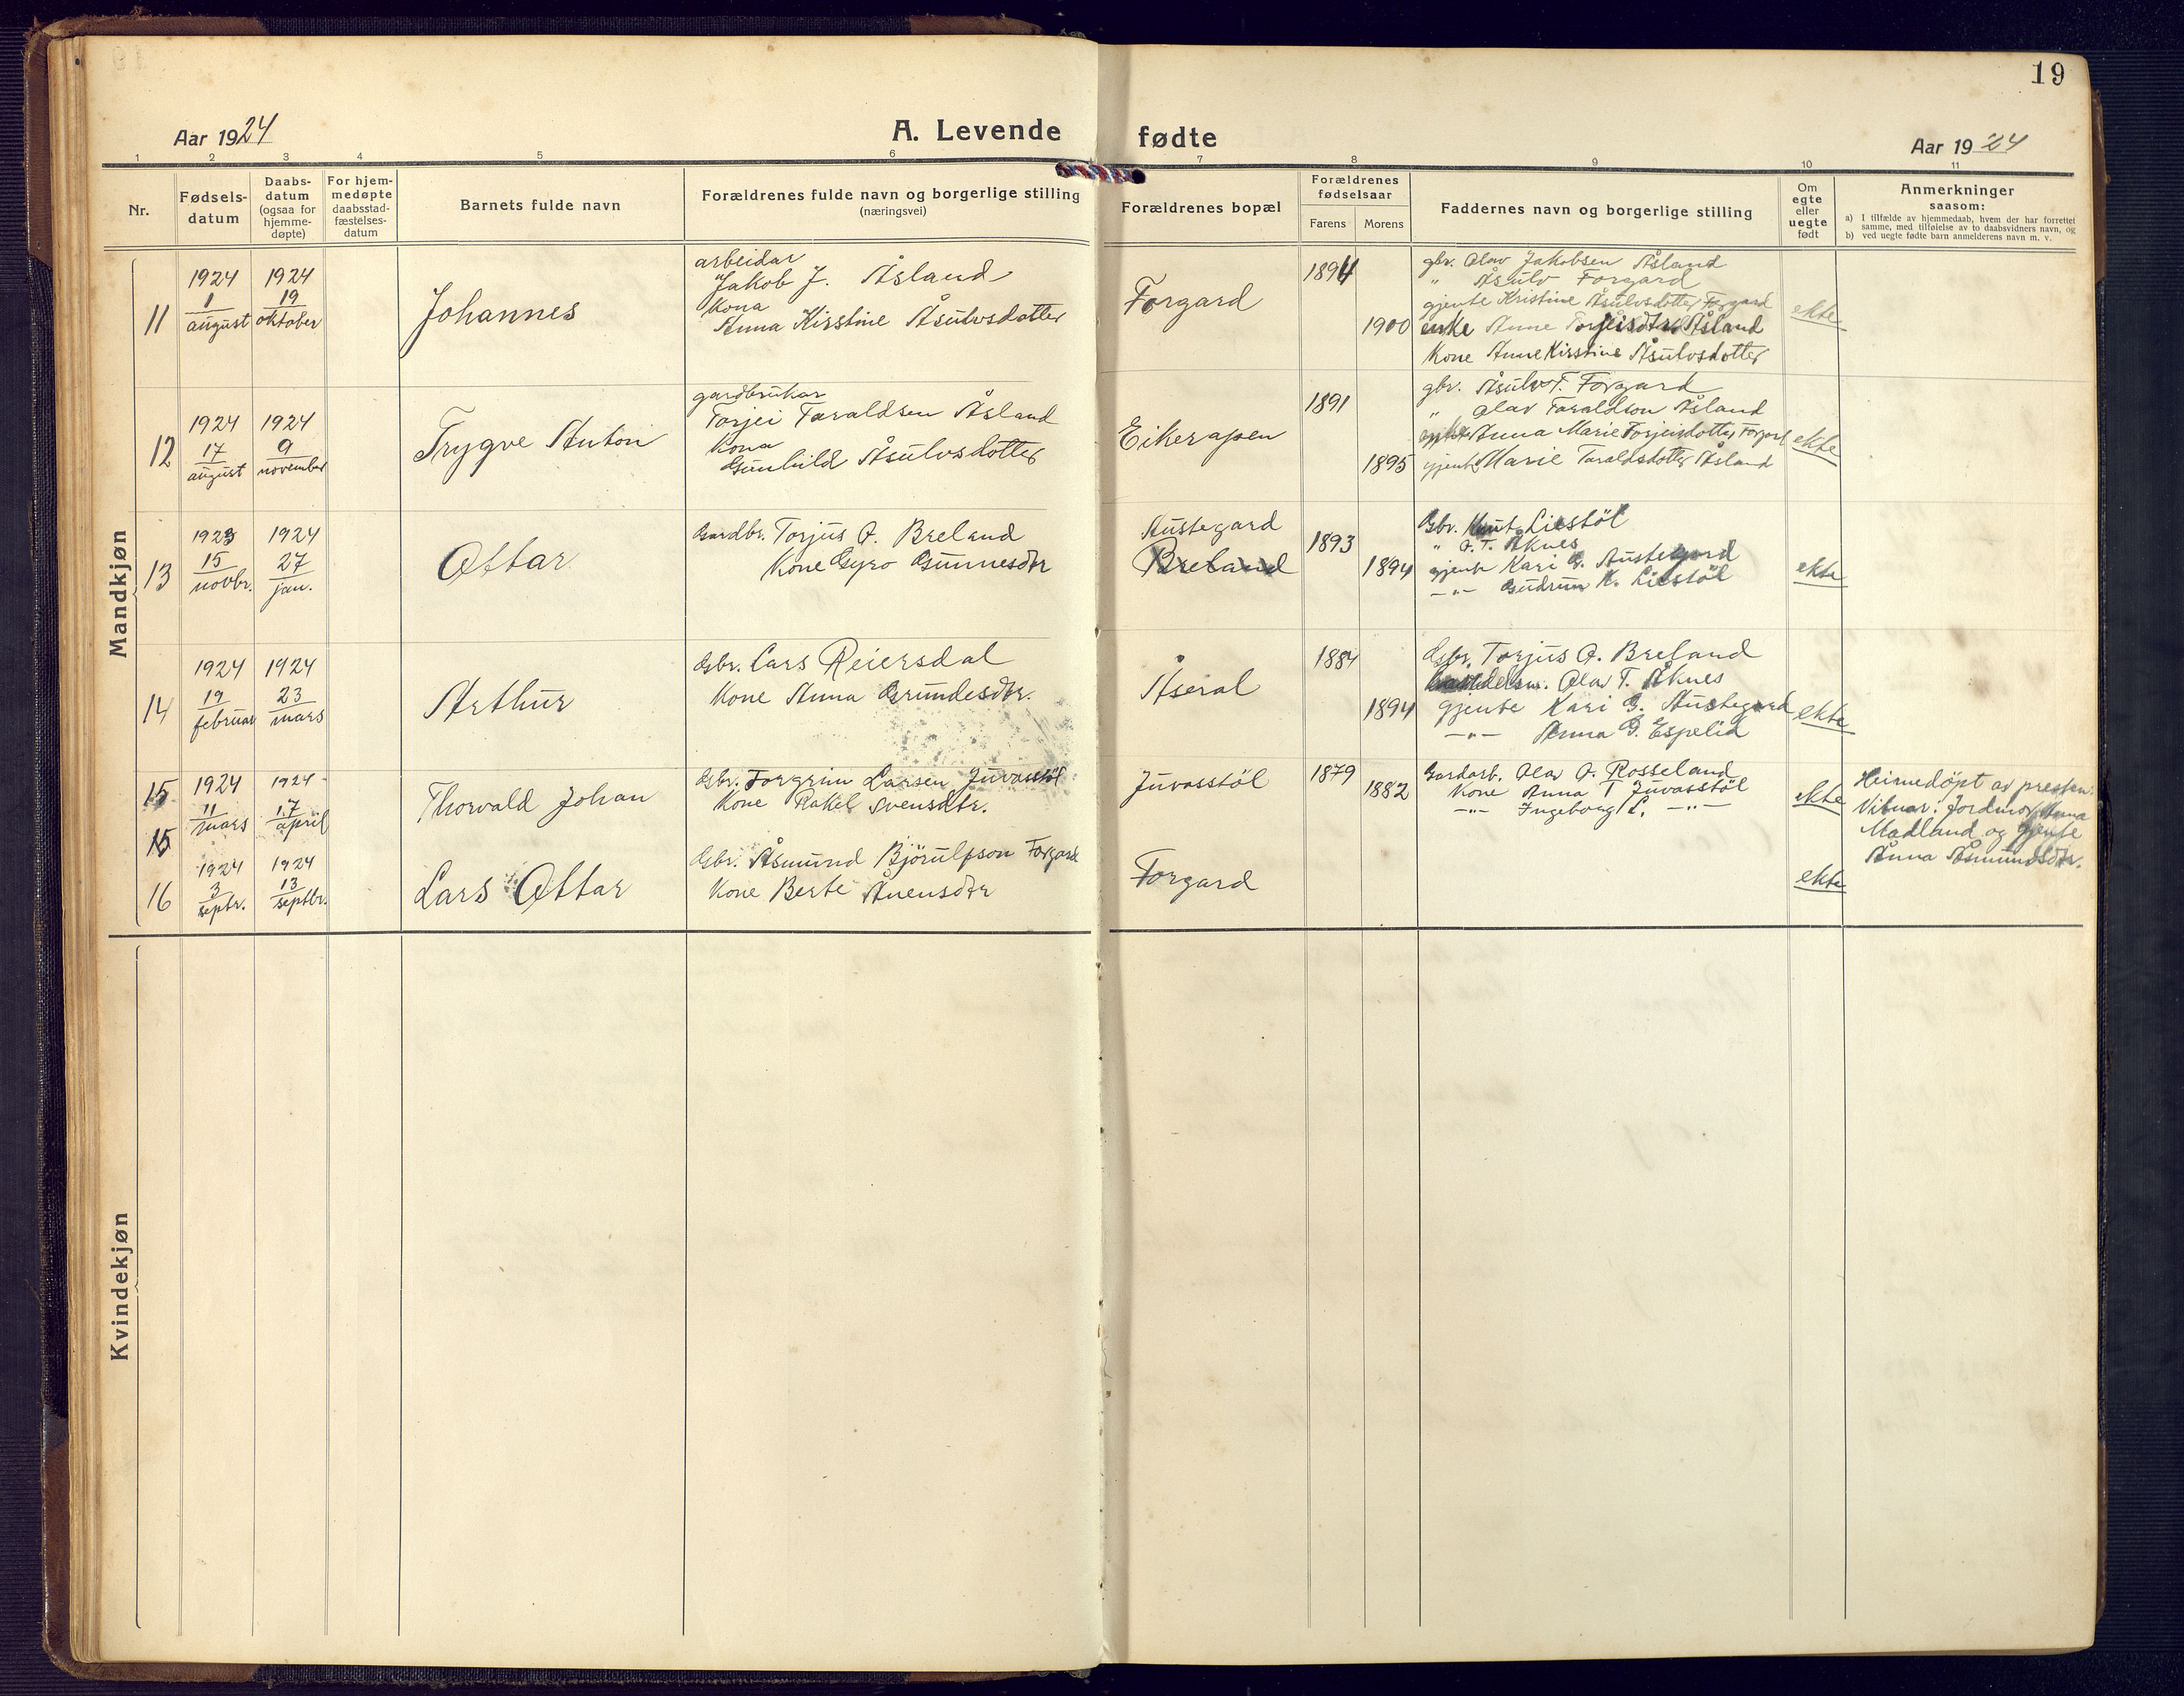 19
Aar 1924
A. Levende fødte
Aar 1924
1 2 3 4 5 6 7 8 9 10 11
Nr.
Fødsels-
datum
Daabs-
datum
(ogsaa for
hjemme-
døpte)
For hjem-
medøpte
daabsstad-
fæstelses-
datum
Barnets fulde navn
Forældrenes fulde navn og borgerlige stilling
(næringsvei)
Forældrenes bopæl
Forældrenes
fødselsaar
Farens Morens
Faddernes navn og borgerlige stilling
Om
egte
eller
uegte
født
Anmerkninger
saasom:
a) I tilfælde av hjemmedaab, hvem der har forrettet
samme, med tilføielse av to daabsvidners navn, og
b) ved uegte fødte barn anmelderens navn m. v.
Mandkjøn
11
1924
1
august
1924
19
oktober
Johannes
arbeidar
Jakob J. Åsland
Kona
Anna Kirstine Åsulvsdotter
Forgard
1894
1900
gbr. Olav Jakobsen Åsland
" Åsulv Forgard
gjente Kristine Åsulvsdotter Forgard
enke Anne Torjeisdtr. Åsland
Kone Anne Kirstine Åsulvsdotter
ekte
12
1924
17
august
1924
9
november
Trygve Anton
gardbrukar
Torjei Taraldsen Åsland
Kona
Gunhild Åsulvsdotter
Eikerapen
1891
1895
gbr. Åsulv T. Forgard
" Olav Taraldson Åsland
Anna Marie Torjeisdotter Forgard
gjente Marie Taraldsdotter Åsland
ekte
13
1923
15
novbr.
1924
27
jan.
Ottar
Gardbr. Torjus O. Breland
Kone Gyro Gunnesdtr
Austegard
Breland
1893
1894
Gbr. Knut Liestöl
" O. T. Åknes
gjente Kari G. Austegard
—"— Gudrun K. Liestöl
ekte
14
1924
19
februar
1924
23
mars
Arthur
Gbr. Lars Reiersdal
Kone Anna Grundesdtr.
Åseral
1884
1894
Gbr. Torjus O. Breland
Olav T. Åknes
gjente Kari G. Austegard
—"— Anna G. Espelid
ekte
15
1924
11
mars
1924
17
april
Thorvald Johan
Gbr. Torgrim Larsen Juvasstöl
Kone Rakel Svensdtr.
Juvasstöl
1879
1882
Gardarb. Olav O. Rosseland
Kone Anna T Juvasstöl
—"— Ingeborg L. —"—
ekte
Heimedöpt av presten.
Vitnar: Jordmor Anna
Madland og gjente
Anna Åsmundsdtr.
15
16
1924
3
septr.
1924
13
septbr.
Lars Ottar
Gbr. Åsmund Björulfson Forgard
Kone Berte Ånensdtr
Forgard
ekte
Kvindekjøn